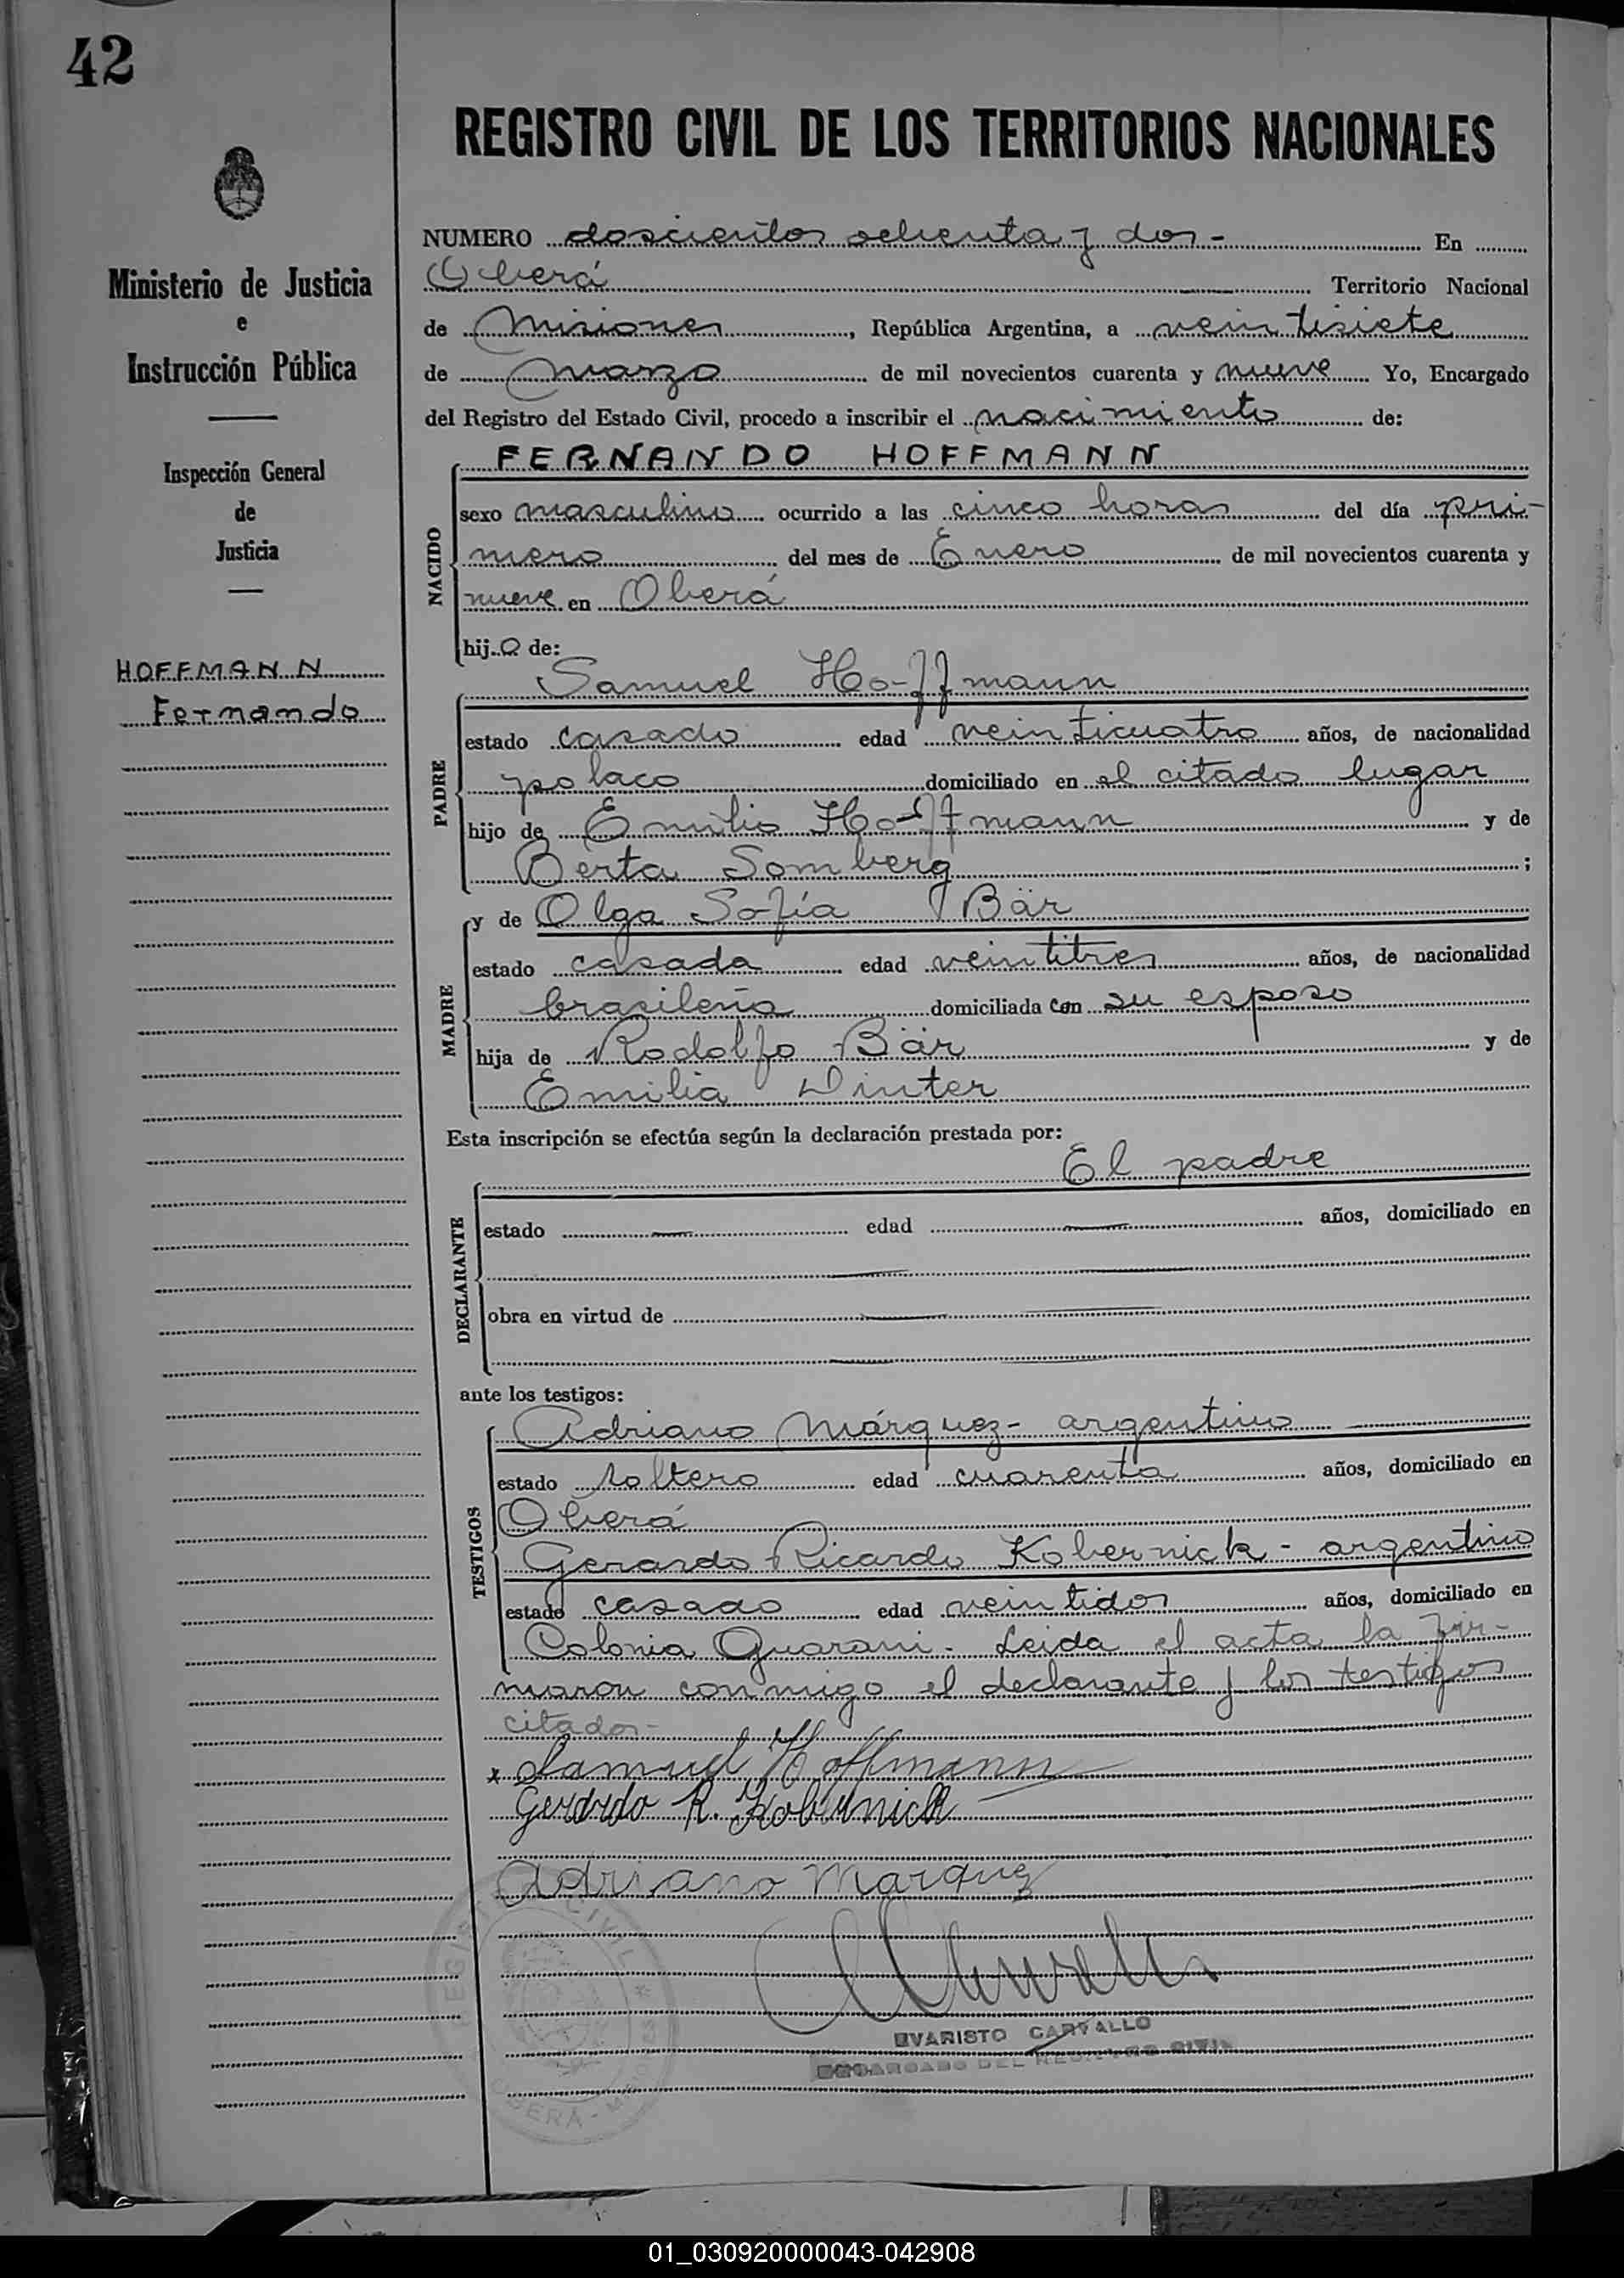 42
REGISTRO CIVIL DE LOS TERRITORIOS NACIONALES
Ministerio de Justicia
e
Instrucción Pública
Inspección General
de
Justicia
HOFFMANN
Fernando
NUMERO doscientos ochenta y dos - En
Oberá Territorio Nacional
de Misiones, República Argentina, a veintisiete
de Marzo de mil novecientos cuarenta y nueve Yo, Encargado
del Registro del Estado Civil, procedo a inscribir el nacimiento de:
NACIDO
FERNANDO HOFFMANN
sexo masculino ocurrido a las cinco horas del día pri-
mero del mes de Enero de mil novecientos cuarenta y
nueve en Oberá
hijo de:
PADRE
Samuel Hoffmann
estado casado edad veinticuatro años, de nacionalidad
polaco domiciliado en el citado lugar
hijo de Emilio Hoffmann y de
Berta Somberg ;
MADRE
y de Olga Sofía Bär
estado casada edad veintitres años, de nacionalidad
brasileña domiciliada con su esposo
hija de Rodolfo Bär y de
Emilia Dinter
Esta inscripción se efectúa según la declaración prestada por:
DECLARANTE
El padre
estado — edad — años, domiciliado en
obra en virtud de
ante los testigos:
TESTIGOS
Adriano Márquez - argentino
estado soltero edad cuarenta años, domiciliado en
Oberá
Gerardo Ricardo Kobernick - argentino
estado casado edad veintidos años, domiciliado en
Colonia Guarani. Leida el acta la fir-
maron conmigo el declarante y los testigos
citados -
x Samuel Hoffmann
Gerardo R. Kobernick
Adriano Marquez
REGISTRO CIVIL * OBERÁ - MISIONES
EVARISTO CARVALLO
ENCARGADO DEL REGISTRO CIVIL
01_030920000043-042908